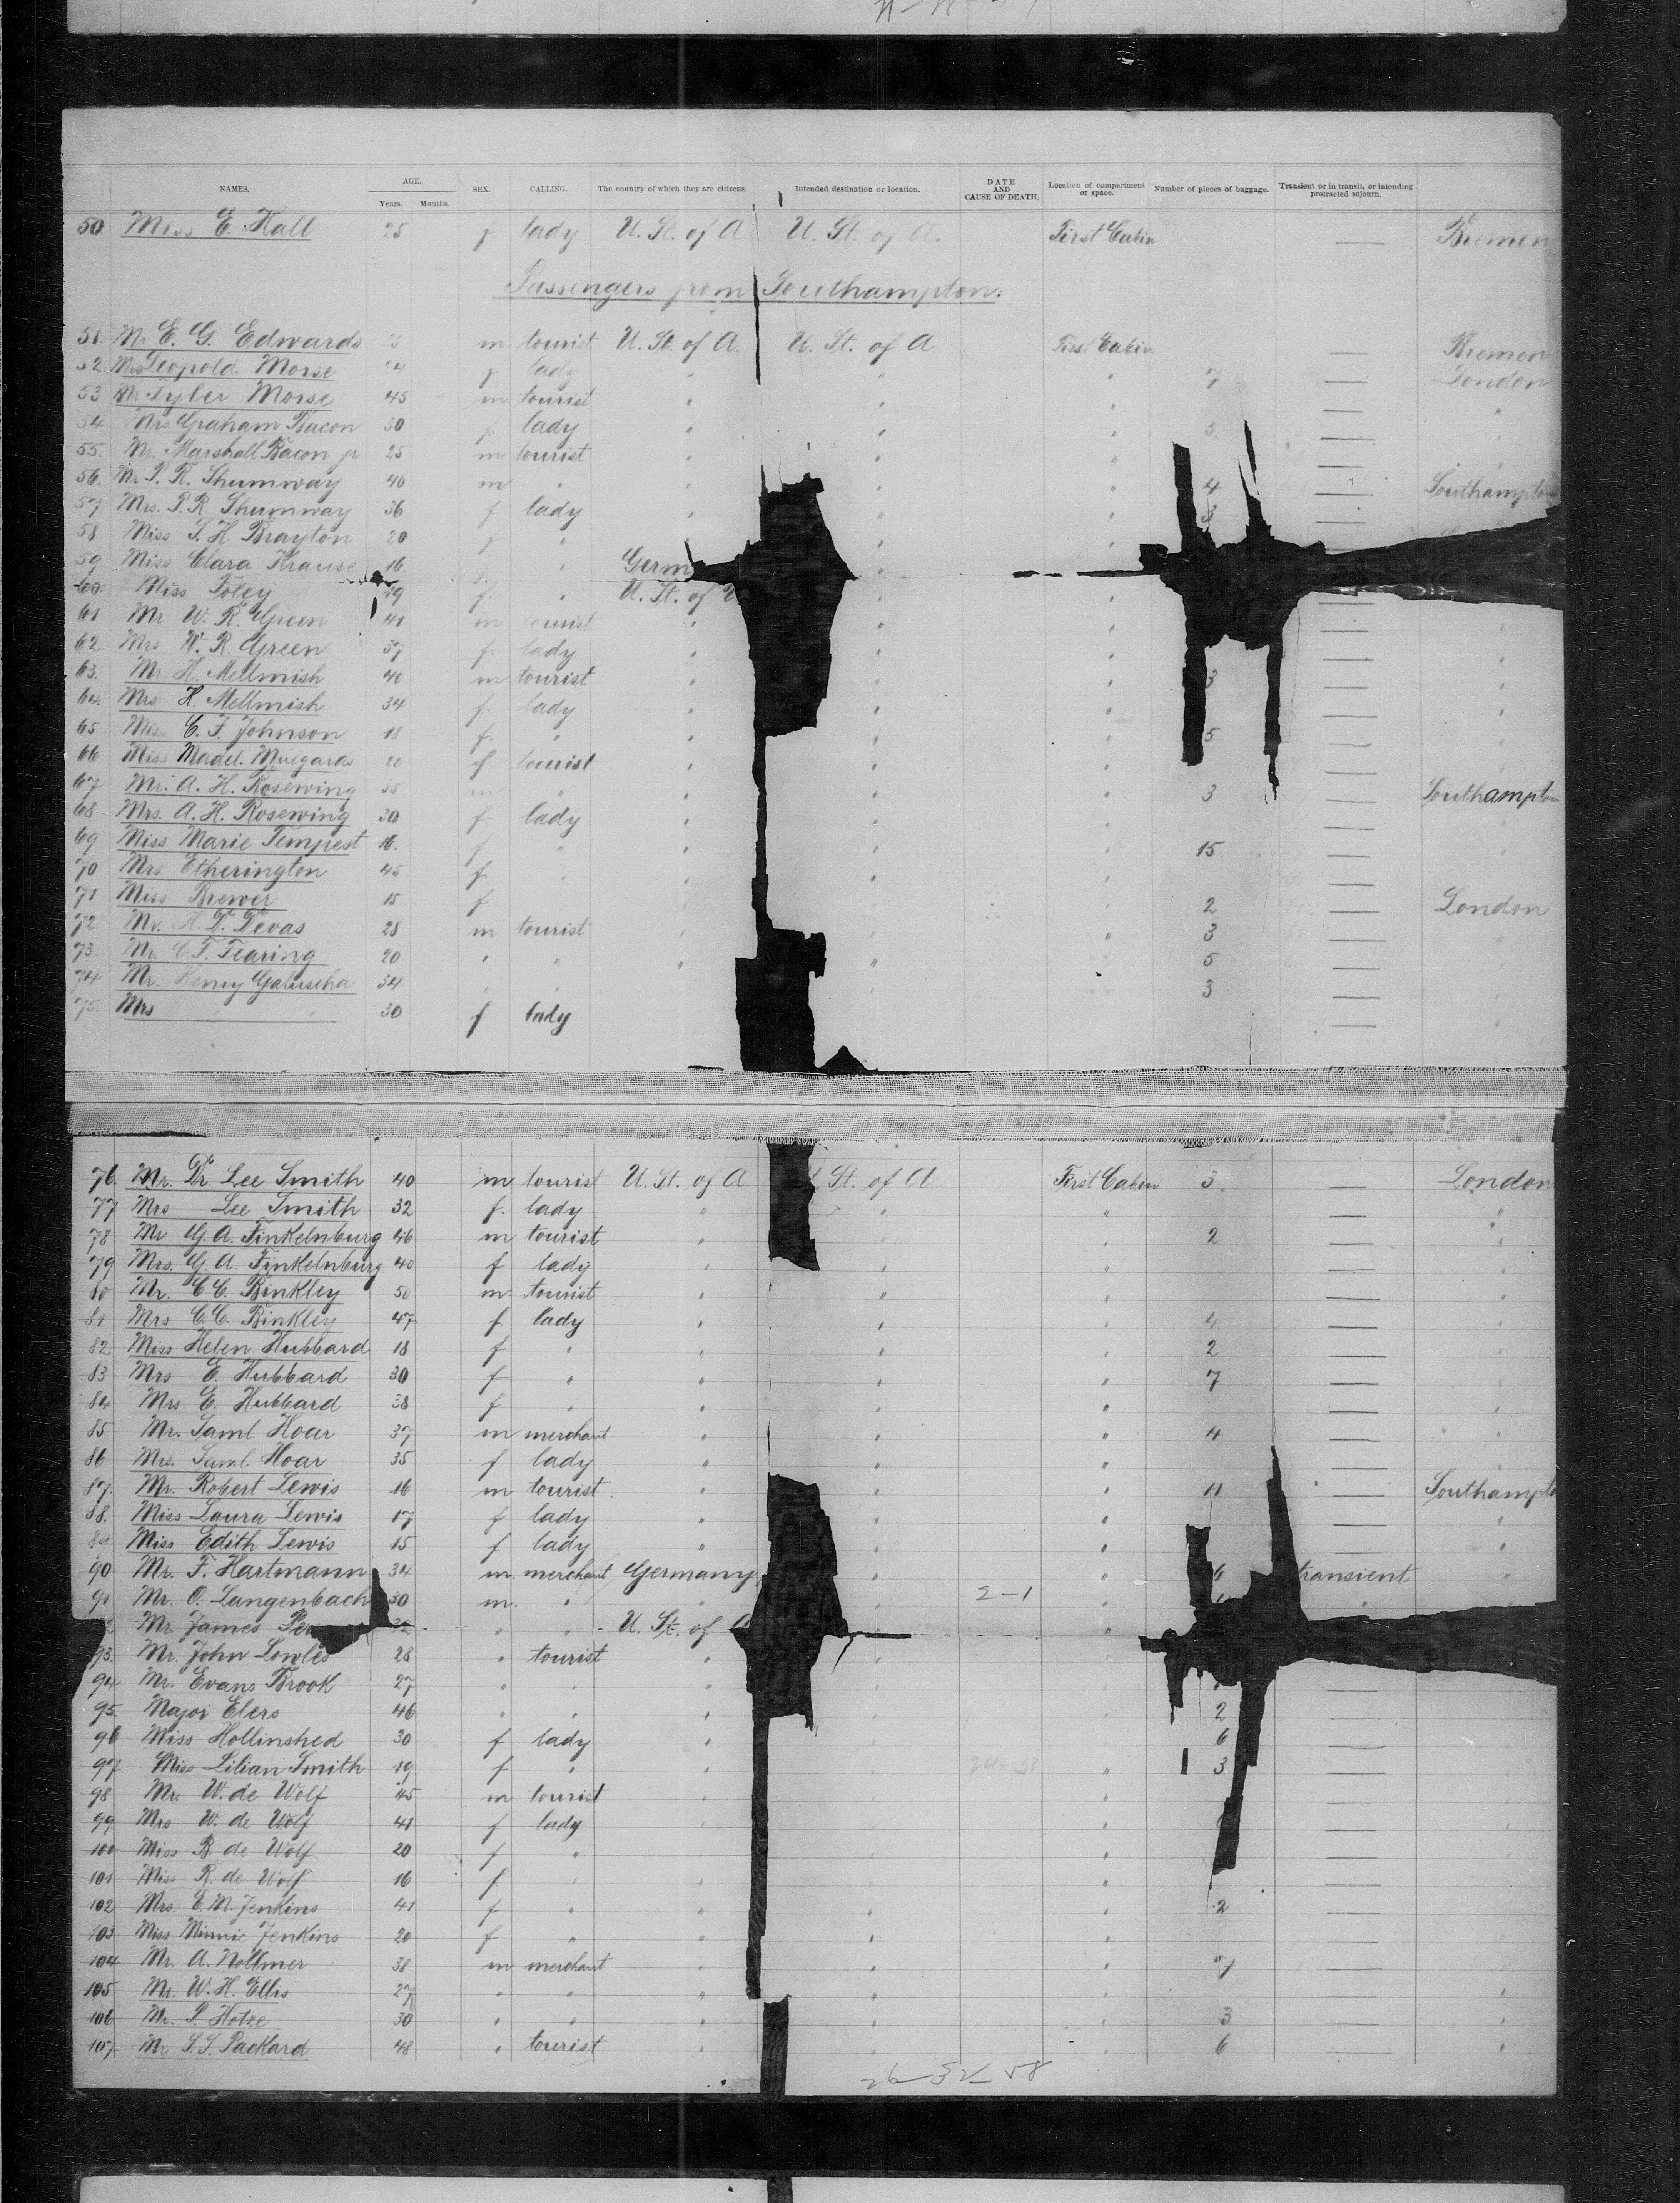 NAMES. AGE. Years. Months. SEX. CALLING. The country of which they are citizens. Intended destination or location. DATE AND CAUSE OF DEATH. Location of compartment or space. Number of pieces of baggage. Transient or in transit, or intending protracted sojourn.
50 Miss E. Hall 25 f. lady U. St. of A U. St. of A. First Cabin — Bremen
Passengers from Southampton:
51. Mr E. G. Edwards m tourist U. St. of A. U. St. of A First Cabin — Bremen
52. Mrs Leopold Morse f lady " " " 7 — London
53 Mr Tyler Morse 45 m tourist " " " — "
54 Mrs Graham Bacon 30 f lady " " " 5. — "
55. Mr. Marshall Bacon jr 25 m tourist " " " — "
56. Mr P. R. Shumway 40 m " " " " 4 — Southampton
57. Mrs. P. R. Shumway 36 f lady " " " —
58 Miss S. H. Brayton 20 f " " "
59 Miss Clara Krause 16 f. " Germ "
60. Miss Foley 19 f. " U. St. of " " —
61 Mr W. R. Green 41 m tourist " " " — "
62 Mrs W. R. Green 37 f lady " " " — "
63. Mr. H. Mellmish 40 m tourist " " " 3 — "
64. Mrs H. Mellmish 34 f. lady " " " — "
65 Miss C. F. Johnson 18 f. " " " " 5 — "
66 Miss Madel. 20 f tourist " " " —
67 Mr. A. H. Rosewing m " " " " 3 — Southampton
68 Mrs. A. H. Rosewing 30 f lady " " " — "
69 Miss Marie Tempest 16. f " " " " 15 — "
70 Mrs Etherington 45 f. " " " " — "
71 Miss Brewer 15 f " " " 2 — London
72. Mr. H. D. Devas 28 m tourist " " 3 — "
73. Mr. C. F. Fearing 20 " " " " 5 — "
74 Mr. Henry Galuscha 34 " " 3 — "
75. Mrs " " 30 f lady — "
76. Mr. Dr. Lee Smith 40 m tourist U. St. of A St. of A First Cabin 3. — London
77 Mrs Lee Smith 32 f. lady " " " — "
78 Mr G. A. Finkelnburg 46 m tourist " " " 2 — "
79 Mrs. G. A. Finkelnburg 40 f lady " " " — "
80 Mr. C. C. Binkley 50 m tourist " " " — "
81 Mrs C. C. Binkley 47 f lady " " " 4 — "
82 Miss Helen Hubbard 18 f " " " " 2 — "
83 Mrs E. Hubbard 30 f " " " " 7 — "
84 Mrs E. Hubbard 38 f " " " " — "
85 Mr. Saml Hoar 37 m merchant " " " 4 — "
86 Mrs. Saml. Hoar 35 f lady " " " — "
87. Mr. Robert Lewis 16 m tourist " " " 11 — Southampto
88. Miss Laura Lewis 17 f lady " " " — "
89 Miss Edith Lewis 15 f lady " " " — "
90 Mr. F. Hartmann 34 m. merchant Germany " " 6 transient "
91 Mr. O. Langenbach 30 m. " " " 2-1 " " "
Mr. James " " U. St. of A " "
93. Mr. John Lowles 28 " tourist " " "
94 Mr. Evans Brook 27 " " " " " — "
95. Major Elers 46 " " " " " 2 — "
96 Miss Hollinshed 30 f lady " " " 6 — "
97 Miss Lilian Smith 19 f " " " " 3 — "
98 Mr. W. de Wolf 45 m tourist " " " — "
99 Mrs W. de Wolf 41 f lady " " " — "
100 Miss B. de Wolf 20 f " " " " — "
101 Miss R. de Wolf 16 f " " " " — "
102 Mrs. E. M. Jenkins 41 f " " " " 2 — "
103 Miss Minnie Jenkins 20 f " " " " — "
104 Mr. A. Nollmer 38 m merchant " " " 7 — "
105 Mr. W. H. Ellis 27 " " " " " — "
106 Mr. P. Hotze 30 " " " " " 3 — "
107. Mr S. S. Packard 48 " tourist " " " 6 — "
26-32-58